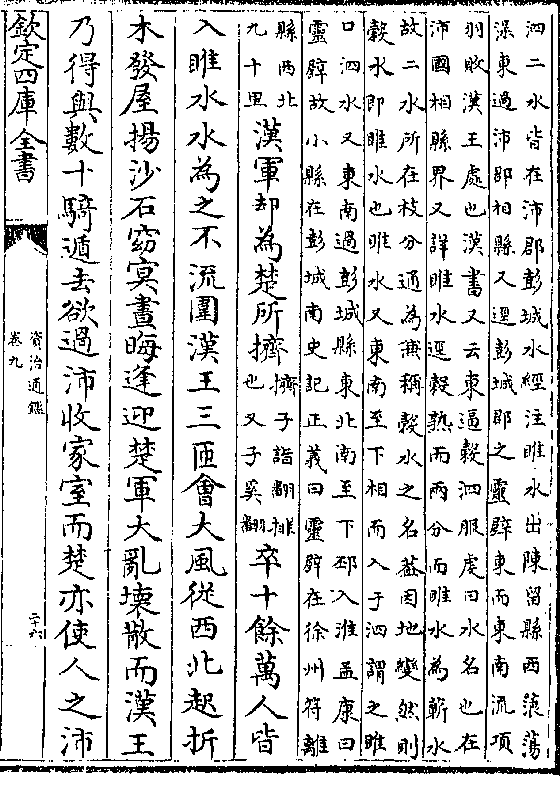 泗二水皆在沛郡彭城水經注睢水出陳留縣西蒗蕩
渠東過沛郡相縣又逕彭城郡之靈壁東而東南流項
羽敗漢王處也漢書又云東逼穀泗服虔曰水名也在
沛國相縣界又詳睢水逕穀熟而兩分而睢水為蘄水
故二水所在枝分通為兼稱穀水之名葢因地變然則
穀水即睢水也睢水又東南至下相而入于泗謂之睢
口泗水又東南過彭城縣東北南至下邳入淮孟康曰
靈壁故小縣在彭城南史記正義曰靈壁在徐州符離
縣西北
九十里
漢軍却為楚所擠
擠子詣翻排
也又子奚翻
卒十餘萬人皆
入睢水水為之不流圍漢王三匝會大風從西北起折
木發屋揚沙石窈冥晝晦逢迎楚軍大亂壞散而漢王
乃得與數十騎遁去欲過沛收家室而楚亦使人之沛
欽定四庫全書
資治通鑑
卷九
二十六